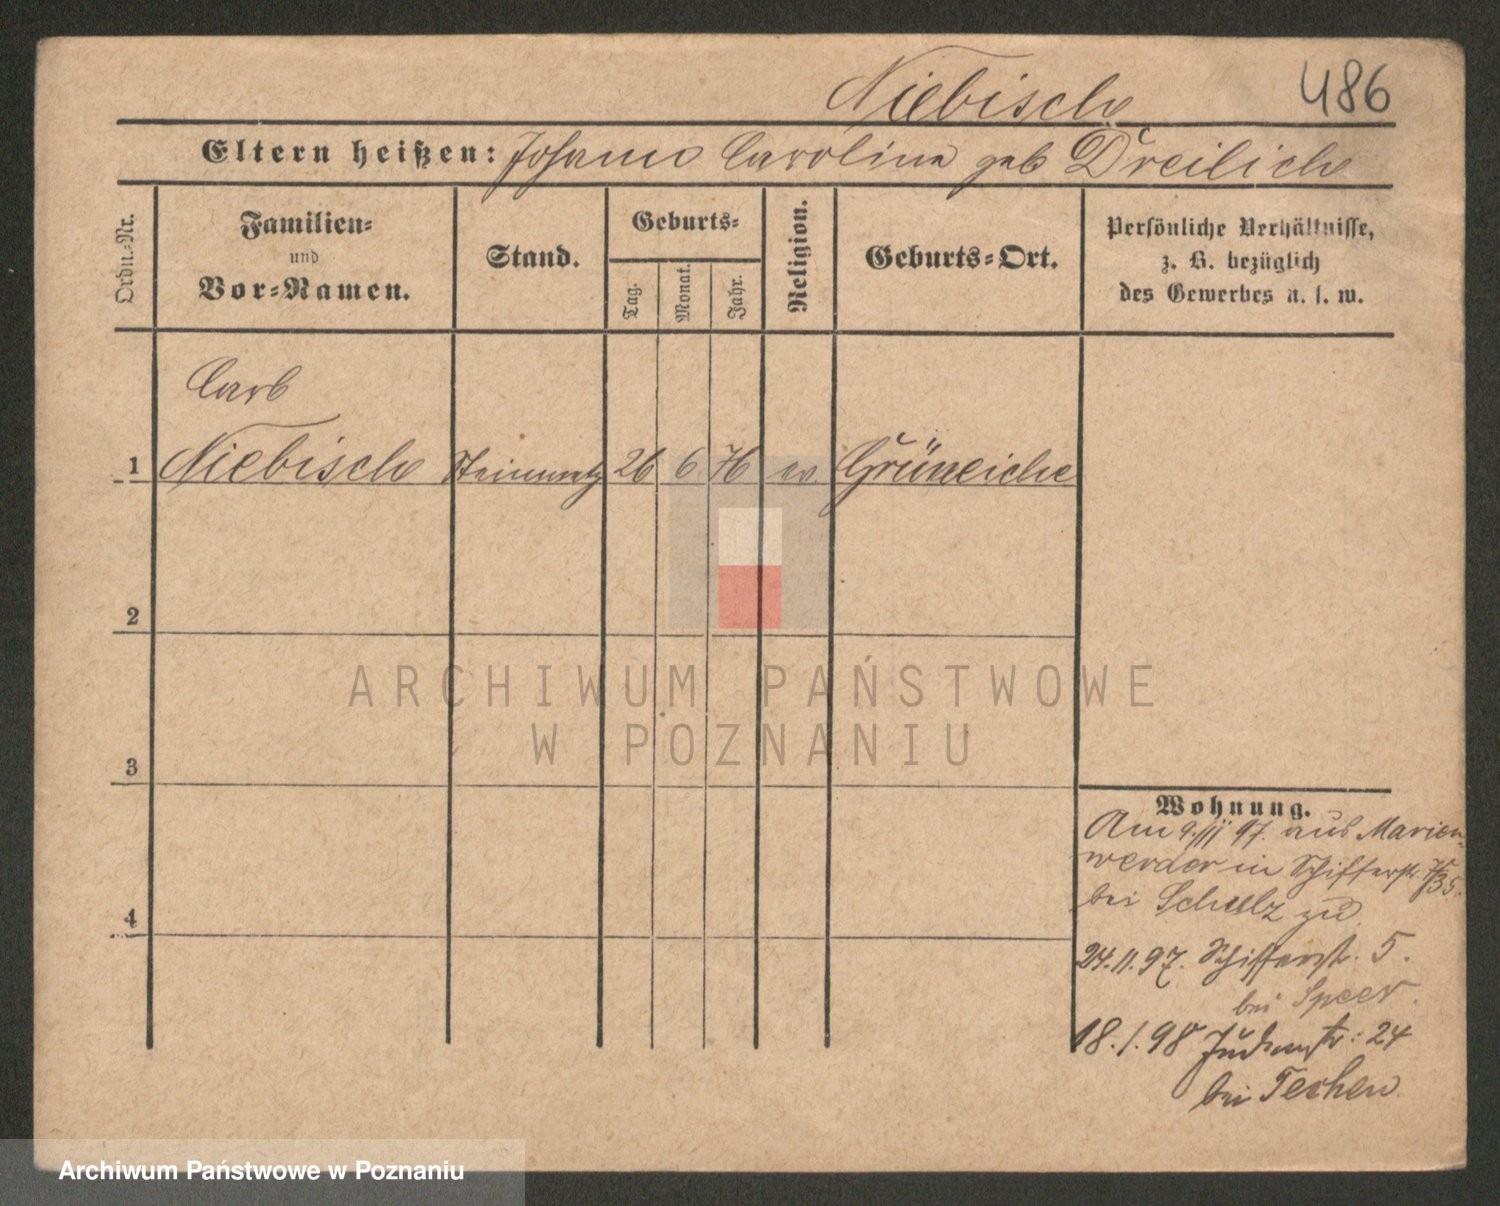 Niebisch
486
Eltern heißen: Johann Carolina geb Dreilich
Ordn.-Nr.
Familien-
und
Vor-Namen.
Stand.
Geburts-
Tag.
Monat.
Jahr.
Religion.
Geburts-Ort.
Persönliche Verhältnisse,
z. B. bezüglich
des Gewerbes u. s. w.
Carl
1 Niebisch Steinmetz 26 6 76 ev. Grüneiche
2
3
4
Wohnung.
Am 9./11 97. aus Marien-
werder in Schifferstr.
bei Schulz zu
24.11.97. Schifferstr. 5.
bei Speer.
18.1.98 Judenstr: 24
bei
ARCHIWUM PAŃSTWOWE
W POZNANIU
Archiwum Państwowe w Poznaniu